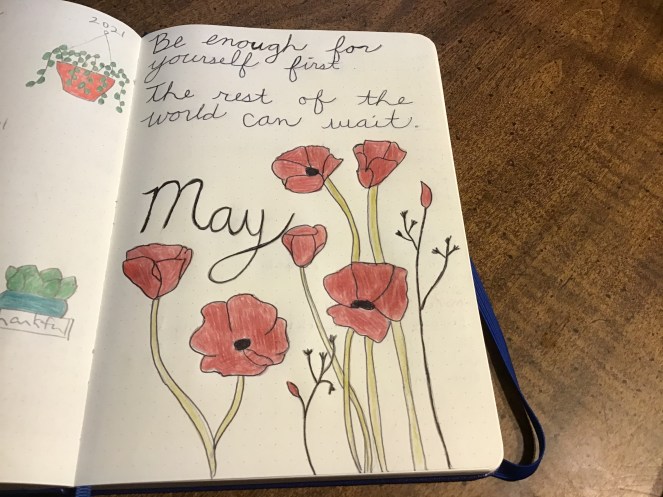 2021
Be enough for
yourself first
The rest of the
world can wait.
May